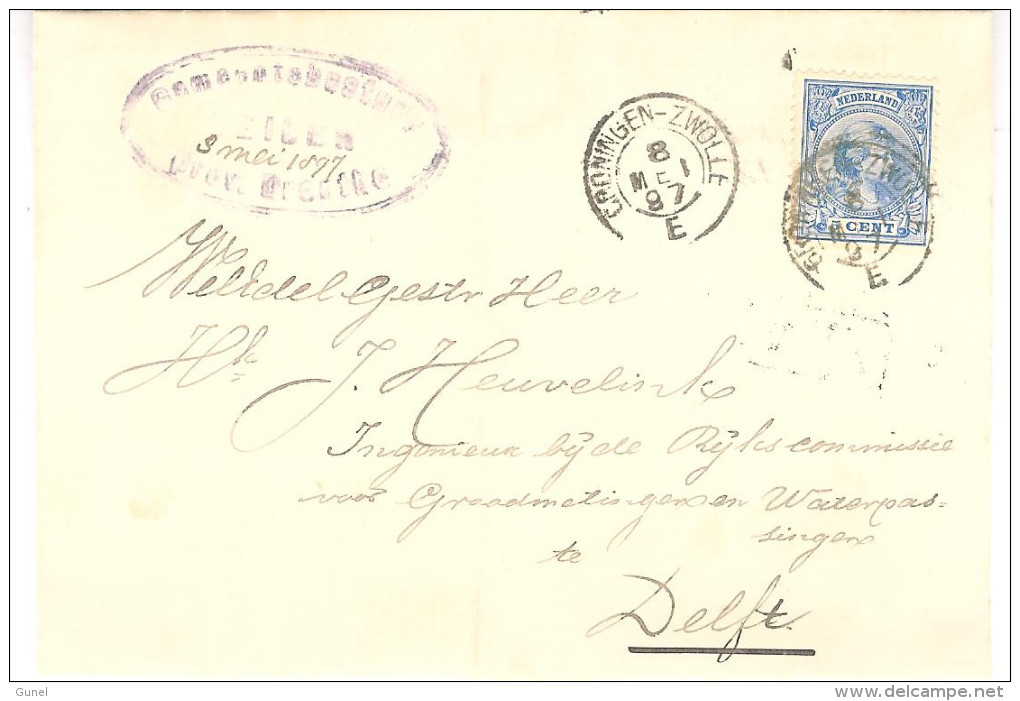 Gemeentebestuur
EILEN
3 mei 1897
Prov. Drenthe
GRONINGEN-ZWOLLE
8
1
MEI
97
E
NEDERLAND
5 CENT
E
WelEdel Gestr Heer
J. Heuvelink
Ingenieur bijde Rijkscommissie
voor Graadmetingen en Waterpas=
singen
te
Delft
Gunel
http://www.delcampe.net